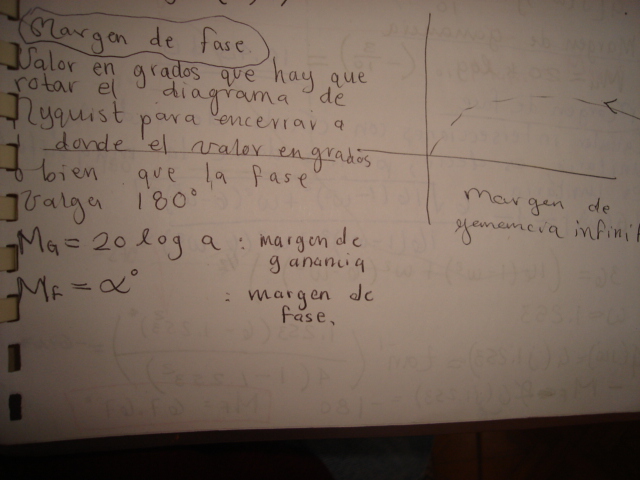 Margen de fase.
Valor en grados que hay que
rotar el diagrama de
Nyquist para encerrar a
donde el valor en grados
o bien que la fase
valga 180°
MG = 20 log a : margen de
ganancia
MF = α° : margen de
fase,
margen de
ganancia infinit